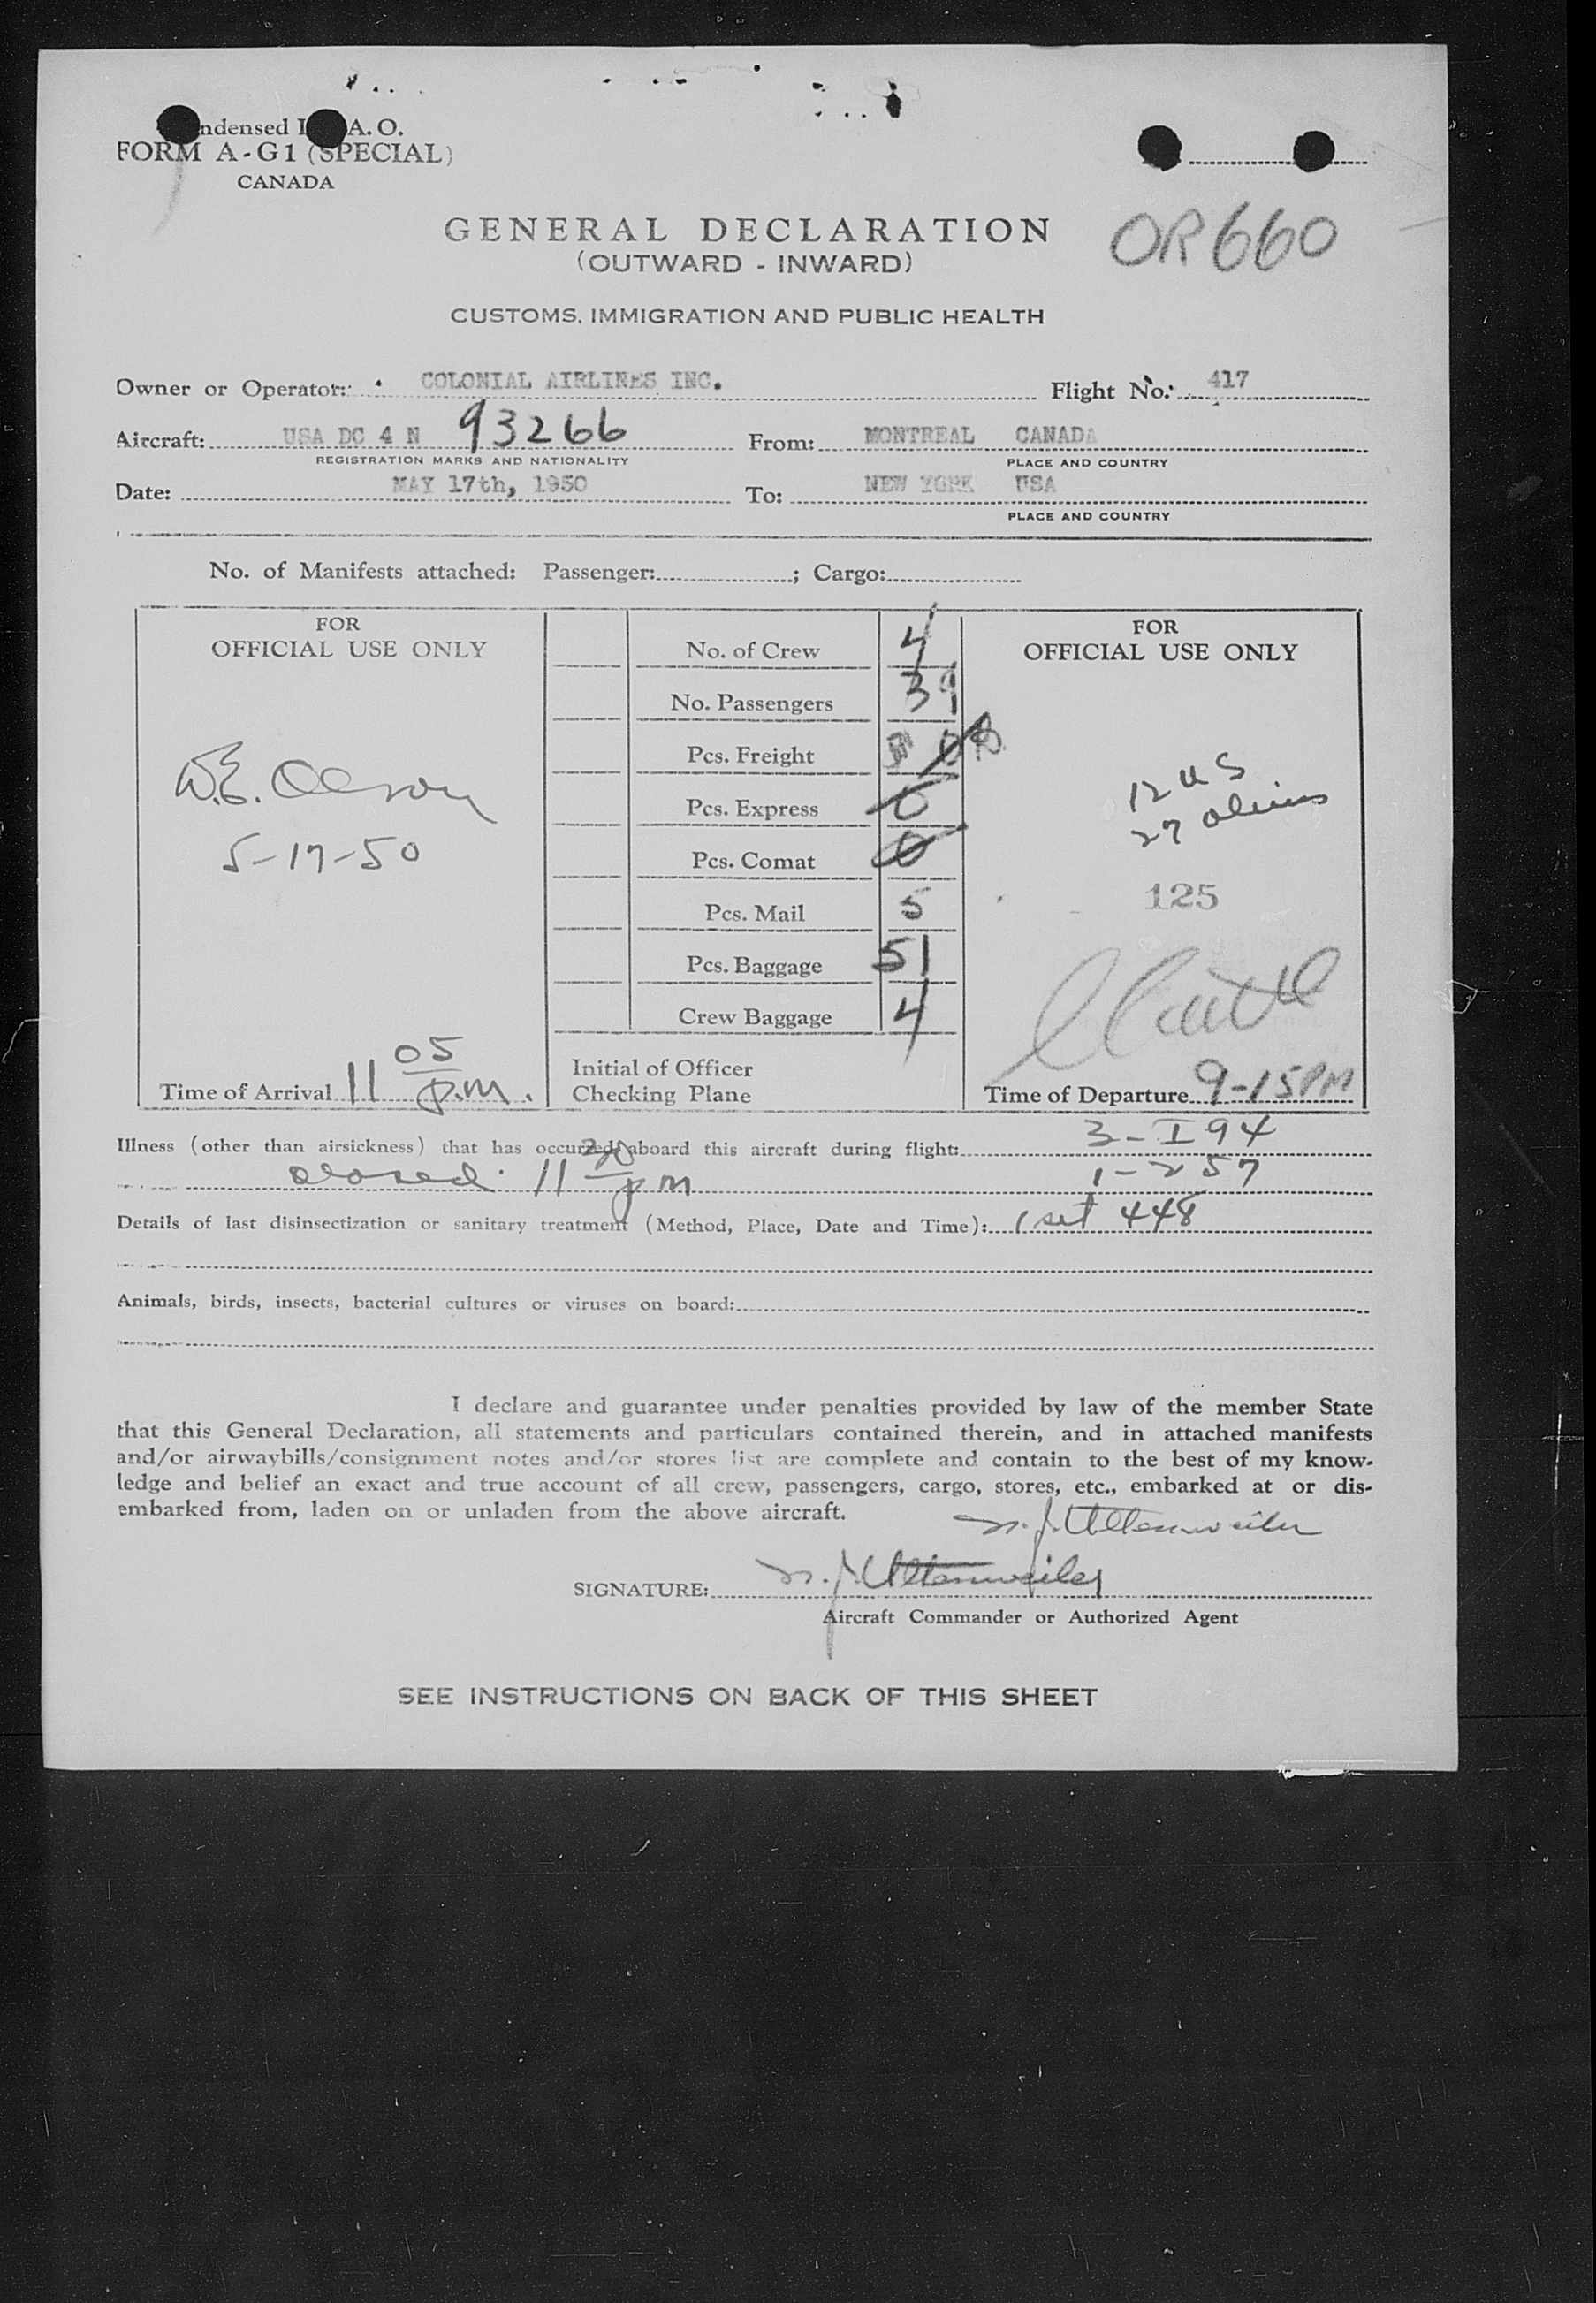 ndensed I A. O.
FORM A-G1 (SPECIAL)
CANADA
GENERAL DECLARATION
OR660
(OUTWARD - INWARD)
CUSTOMS, IMMIGRATION AND PUBLIC HEALTH
Owner or Operator: COLONIAL AIRLINES INC. Flight No.: 417
Aircraft: USA DC 4 N 93266 From: MONTREAL CANADA
REGISTRATION MARKS AND NATIONALITY PLACE AND COUNTRY
Date: MAY 17th, 1950 To: NEW YORK USA
PLACE AND COUNTRY
No. of Manifests attached: Passenger: ; Cargo:
FOR
OFFICIAL USE ONLY
W.E. Olson
5-17-50
Time of Arrival 11 05 p.m.
No. of Crew 4
No. Passengers 39
Pcs. Freight
Pcs. Express 0
Pcs. Comat 0
Pcs. Mail 5
Pcs. Baggage 51
Crew Baggage 4
Initial of Officer
Checking Plane
FOR
OFFICIAL USE ONLY
12 US
27 aliens
125
Time of Departure 9-15PM
Illness (other than airsickness) that has occurred aboard this aircraft during flight: 3-I 94
closed 11 30 pm 1-257
Details of last disinsectization or sanitary treatment (Method, Place, Date and Time): 1 set 448
Animals, birds, insects, bacterial cultures or viruses on board:
I declare and guarantee under penalties provided by law of the member State
that this General Declaration, all statements and particulars contained therein, and in attached manifests
and/or airwaybills/consignment notes and/or stores list are complete and contain to the best of my know-
ledge and belief an exact and true account of all crew, passengers, cargo, stores, etc., embarked at or dis-
embarked from, laden on or unladen from the above aircraft.
SIGNATURE:
Aircraft Commander or Authorized Agent
SEE INSTRUCTIONS ON BACK OF THIS SHEET